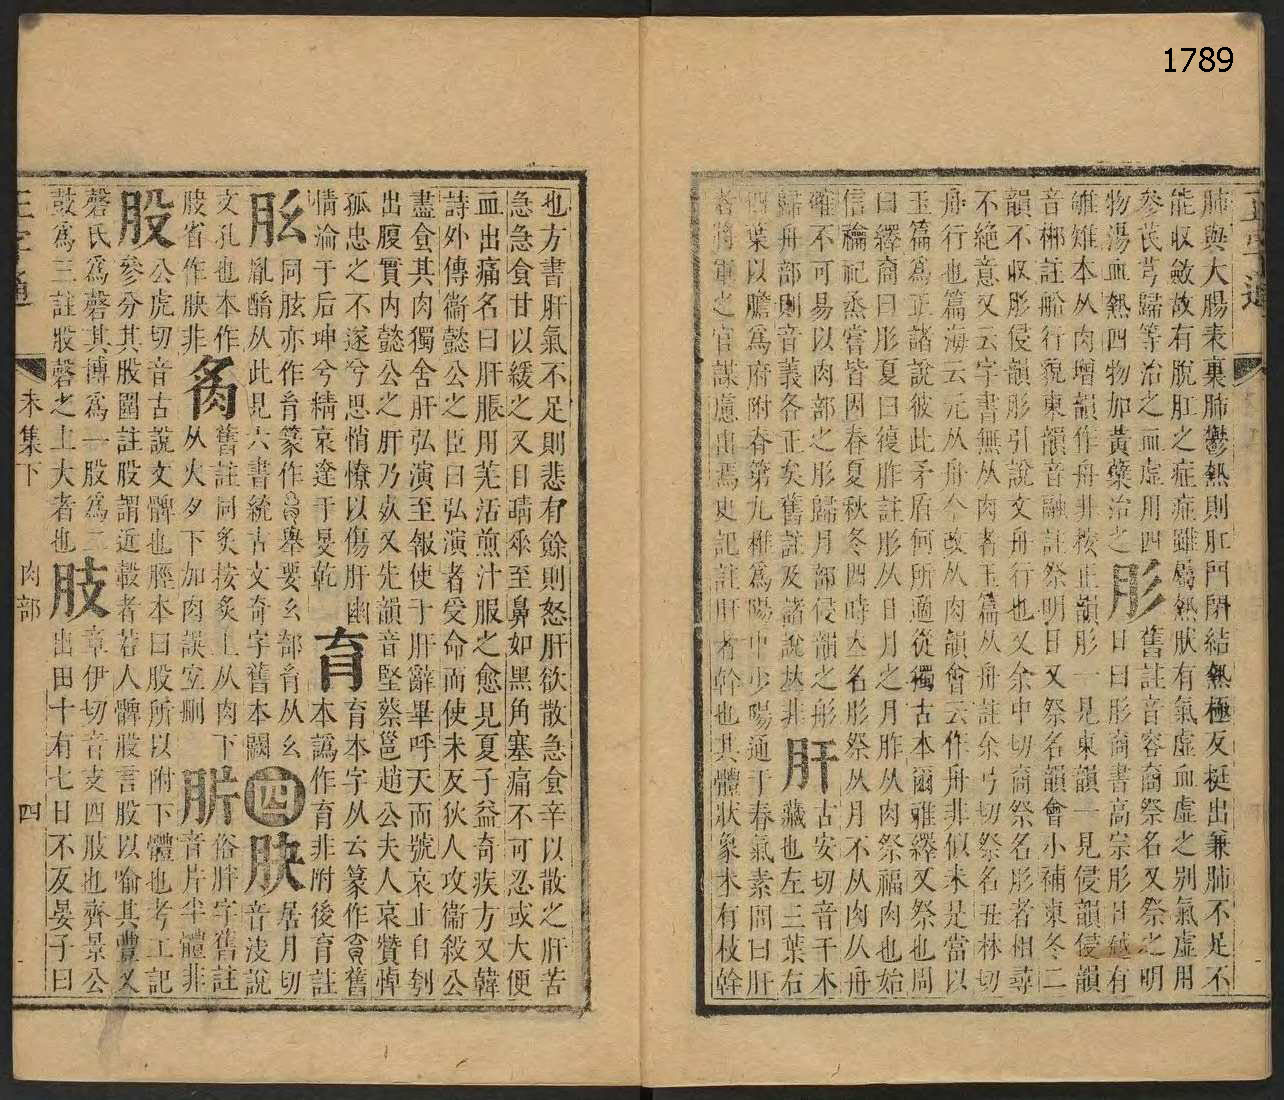 1789
肺與大腸表裏肺鬱熱則肛門閉結熱極反挺出兼肺不足不
能收斂故有脫肛之症症雖屬熱肰有氣虛血虛之別氣虛用
參芪芎歸等治之血虛用四
物湯血熱四物加黃蘗治之 肜 舊註音容裔祭名又祭之明
日曰肜裔書高宗肜日越有
雊雉本从肉增韻作舟非按正韻肜一見東韻一見侵韻侵韻
音郴註船行貌東韻音融註祭明日又祭名韻會小補東冬二
韻不收肜侵韻肜引說文舟行也又余中切裔祭名肜者相尋
不絶意又云字書無从肉者玉篇从舟註余弓切祭名丑林切
舟行也篇海云元从舟今改从肉韻會云作舟非似未是當以
玉篇爲正諸說彼此矛盾何所適從獨古本爾雅繹又祭也周
曰繹裔曰肜夏曰復胙註肜从日月之月胙从肉祭福肉也始
信禴祀烝嘗皆因春夏秋冬四時𠀤名肜祭从月不从肉从舟
確不可易以肉部之肜歸月部侵韻之彤
歸舟部則音義各正矣舊註及諸說𠀤非 肝 古安切音干木
藏也左三葉右
四葉以膽爲府附脊第九椎爲陽中少陽通于春氣素問曰肝
者將軍之官謀慮出焉史記註肝者幹也其體狀象木有枝幹
正字通
也方書肝氣不足則悲有餘則怒肝欲散急食辛以散之肝苦
急急食甘以緩之又目睛垂至鼻如黑角塞痛不可忍或大便
血出痛名曰肝脹用羌活煎汁服之愈見夏子益奇疾方又韓
詩外傳衞懿公之臣曰弘演者受命而使未反狄人攻衞殺公
盡食其肉獨舍肝弘演至報使于肝辭畢呼天而號哀止自刳
出腹實內懿公之肝乃死又先韻音堅蔡邕趙公夫人哀贊悼
孤忠之不遂兮思悄憭以傷肝幽
情淪于后坤兮精哀達于旻乾 育 育本字从云篆作𠫓舊
本譌作育非附後育註
胘 同胘亦作肻篆作𦙞舉要幺部肻从幺
胤酳从此見六書統古文奇字舊本闕 四 肰 居月切
音泬說
文孔也本作
䏐省作肰非 𦙫 舊註同炙按炙上从肉下
从火夕下加肉誤宜刪 𦙀 俗胖字舊註
音片半體非
股 公虎切音古說文髀也脛本曰股所以附下體也考工記
參分其股圍註股謂近轂者若人髀股言股以喻其豐又
磬氏爲磬其博爲一股爲二
鼓爲三註股磬之上大者也 肢 章伊切音支四肢也齊景公
出田十有七日不反晏子曰
正字通 未集下 肉部 四